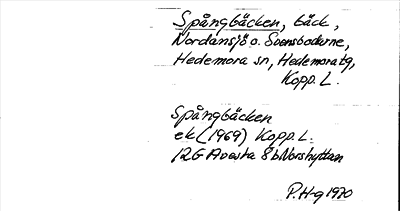 Spångbäcken, bäck,
Nordansjö o. Svensboderne,
Hedemora sn, Hedemora tg,
Kopp. L.
Spångbäcken
ek (1969) Kopp. L.
12G Avesta 8b Norshyttan
P. H-g 1970